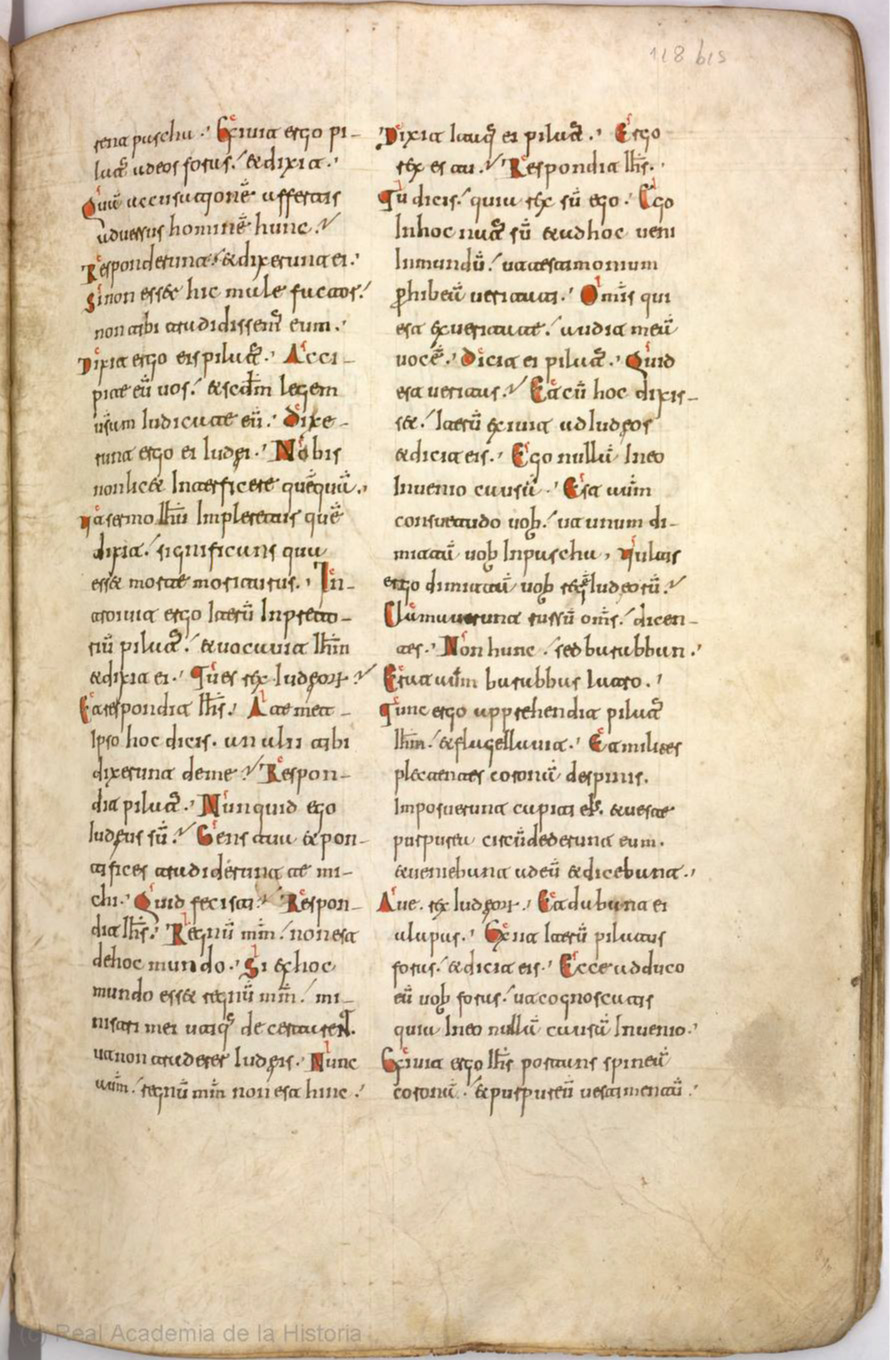 118 bis
rent pascha. Exivit ergo pi-
lat᷒ ad eos foras. & dixit.
Quā accusationē affertis
adversus hominē hunc.
Responderunt. & dixerunt ei.
Si non ess& hic malefactor.
non tibi tradidissem᷒ eum.
Dixit ergo eis pilat᷒. Acci-
pite eū vos. & scdm̄ legem
vs̄am Iudicate eū. Dixe-
runt ergo ei Iudęi. Nobis
non lic& Interficere quēquā.
Vt sermo Ihū Impleretur quē
dixit. significans qua
ess& morte moriturus. In-
troivit ergo Iterū Inpreto-
riū pilat᷒. & vocavit Ihm̄
& dixit ei. Tu es rex Iudęorꝝ
Et respondit Ihs̄. A temet-
Ipso hoc dicis. an alii tibi
dixerunt de me. Respon-
dit pilat᷒. Nunquid ego
Iudęus sū. Gens tua & pon-
tifices tradiderunt te mi-
chi. Quid fecisti. Respon-
dit Ihs̄. Regnū mm̄ non est
dehoc mundo. Si ex hoc
mundo ess& regnū mm̄. mi-
nistri mei utiq᷒ decertarent.
ut non traderer Iudęis. Nunc
aūm. regnū mm̄ non est hinc.
Dixit Itaq᷒ ei pilat᷒. Ergo
rex es tu. Respondit Ihs̄.
Tu dicis. quia rex sū ego. Ego
Inhoc nat᷒ sū & adhoc veni
Inmundū. ut testimonium
ꝑhibeā veritati. Omīs qui
est ex veritate. audit meā
vocē. Dicit ei pilat᷒. Quid
est veritas. Et cū hoc dixis-
s&. Iterū exivit ad Iudęos
& dicit eis. Ego nullā Ineo
Invenio causā. Est aūm
consuetudo vob̄. ut unum di-
mittā vob̄ Inpascha, Vultis
ergo dimittā vob̄ regē Iudęorū.
Clamaverunt rursū oms̄. dicen-
tes. Non hunc. sed barabban.
Erat aūm barabbas latro.
Tunc ergo apprehendit pilat᷒
Ihm̄. & flagellavit. Et milites
plectentes coronā despinis.
Imposuerunt capiti ei᷒. & veste
purpurea circūdederunt eum.
& veniebant ad eū & dicebant.
Ave. rex Iudęorꝝ. Et dabant ei
alapas. Exiit Iterū pilatus
foras. & dicit eis. Ecce adduco
eū vob̄ foras. ut cognoscatis
quia Ineo nullā causā Invenio.
Exivit ergo Ihs̄ portans spineā
coronā. & purpureū vestimentū.
(c) Real Academia de la Historia